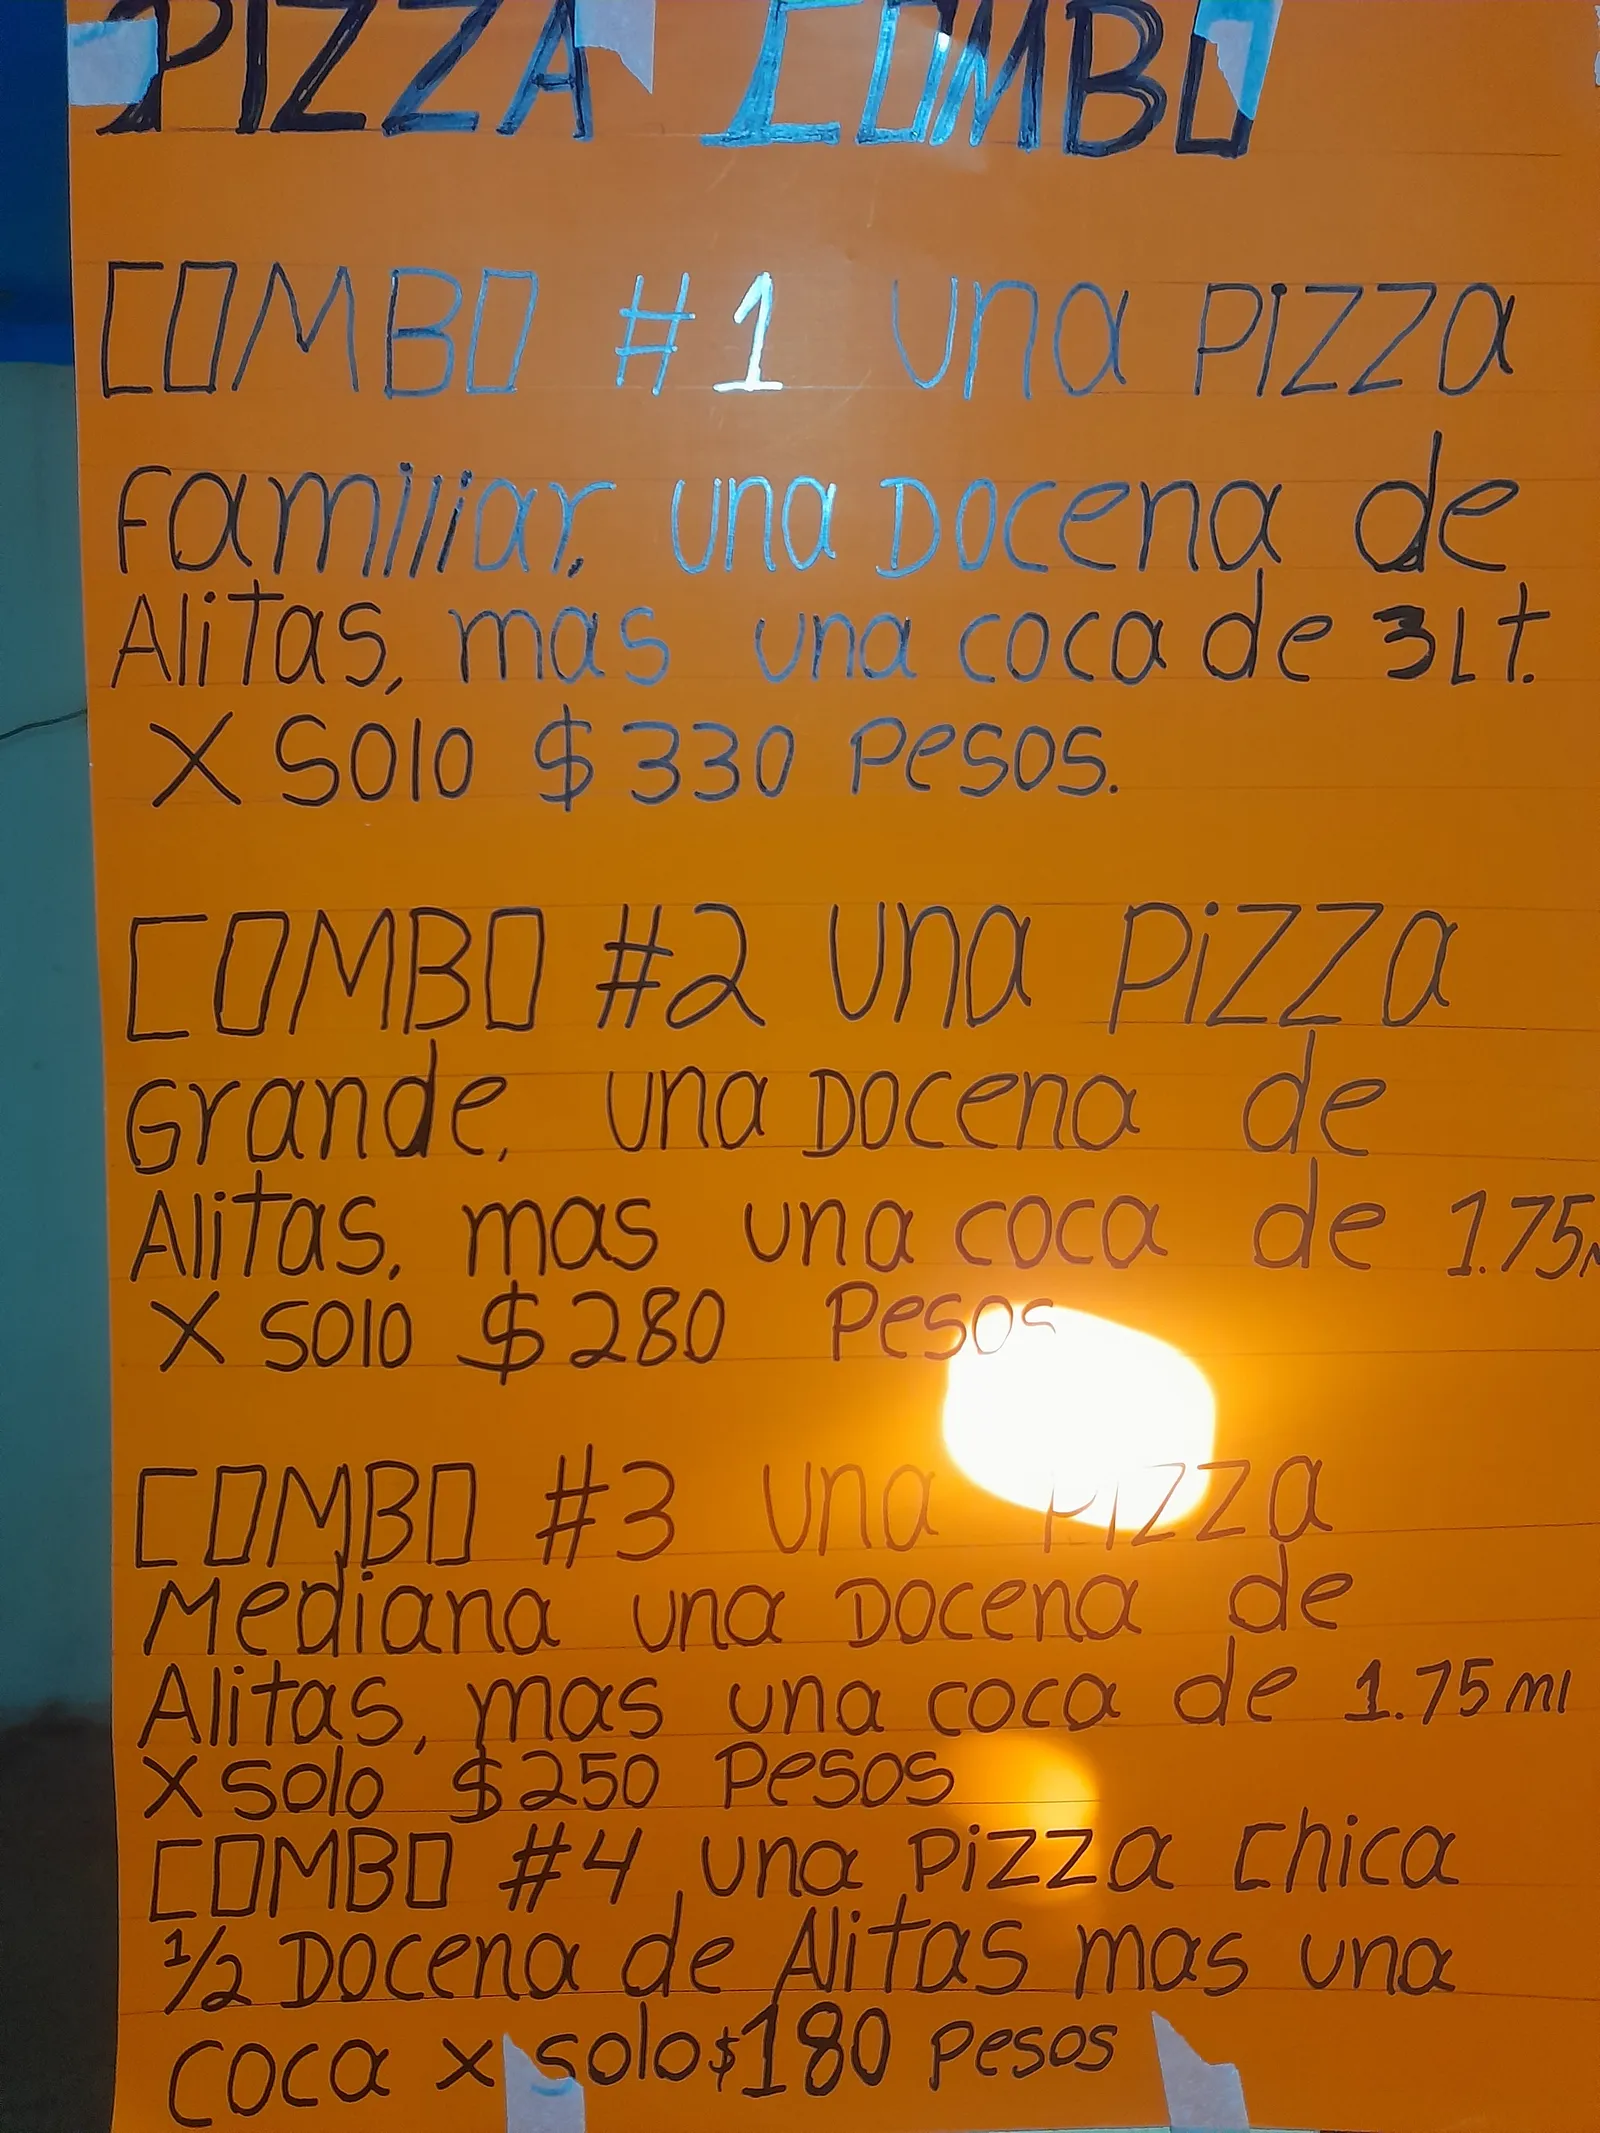 PIZZA COMBO
COMBO #1 una Pizza
Familiar, una Docena de
Alitas, mas una coca de 3Lt.
X Solo $330 Pesos.
COMBO #2 una Pizza
Grande, una Docena de
Alitas, mas una coca de 1.75m
X Solo $280 Pesos
COMBO #3 una Pizza
Mediana una Docena de
Alitas, mas una coca de 1.75ml
X Solo $250 Pesos
COMBO #4 una Pizza Chica
1/2 Docena de Alitas mas una
coca x solo $180 Pesos